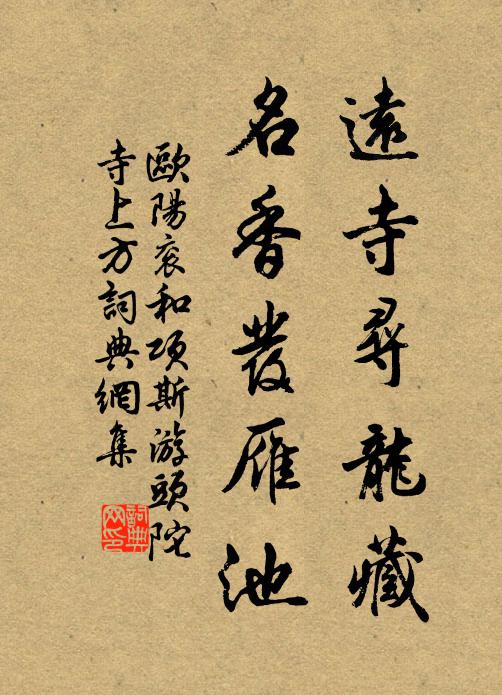 遠寺尋龍藏
名香發雁池
歐陽袞和項斯游頭陀
寺上方詞典網集
詞典
网印